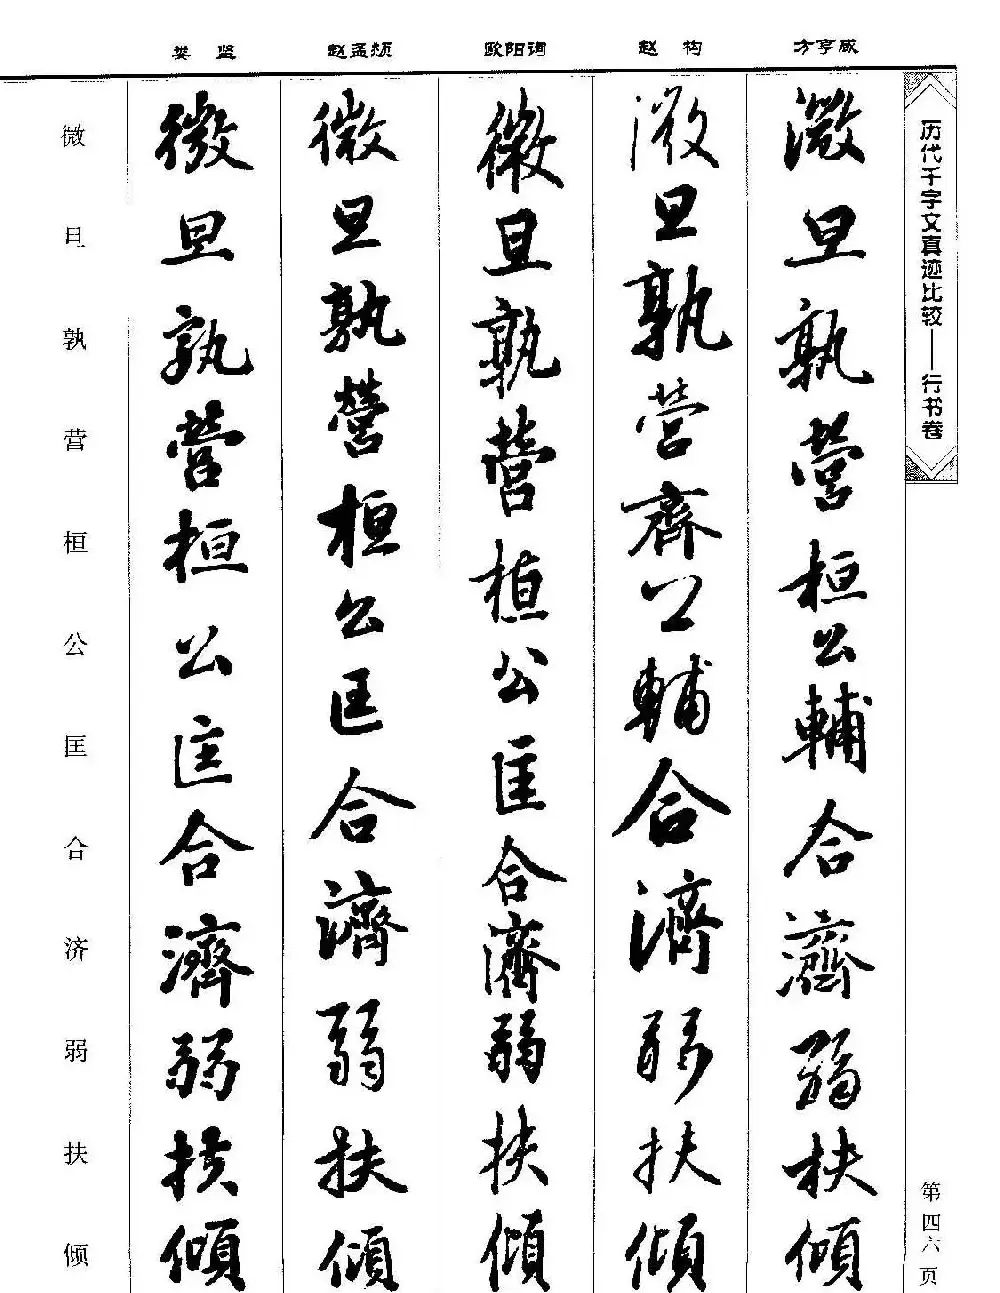 历代千字文真迹比较——行书卷
第四六页
方亨咸
澂旦孰营桓公輔合濟弱扶傾
赵构
澂旦孰营齊公輔合濟弱扶傾
欧阳询
微旦孰營桓公匡合濟弱扶傾
赵孟頫
微旦孰營桓公匡合濟弱扶傾
娄坚
微旦孰營桓公匡合濟弱扶傾
微旦孰营桓公匡合济弱扶倾